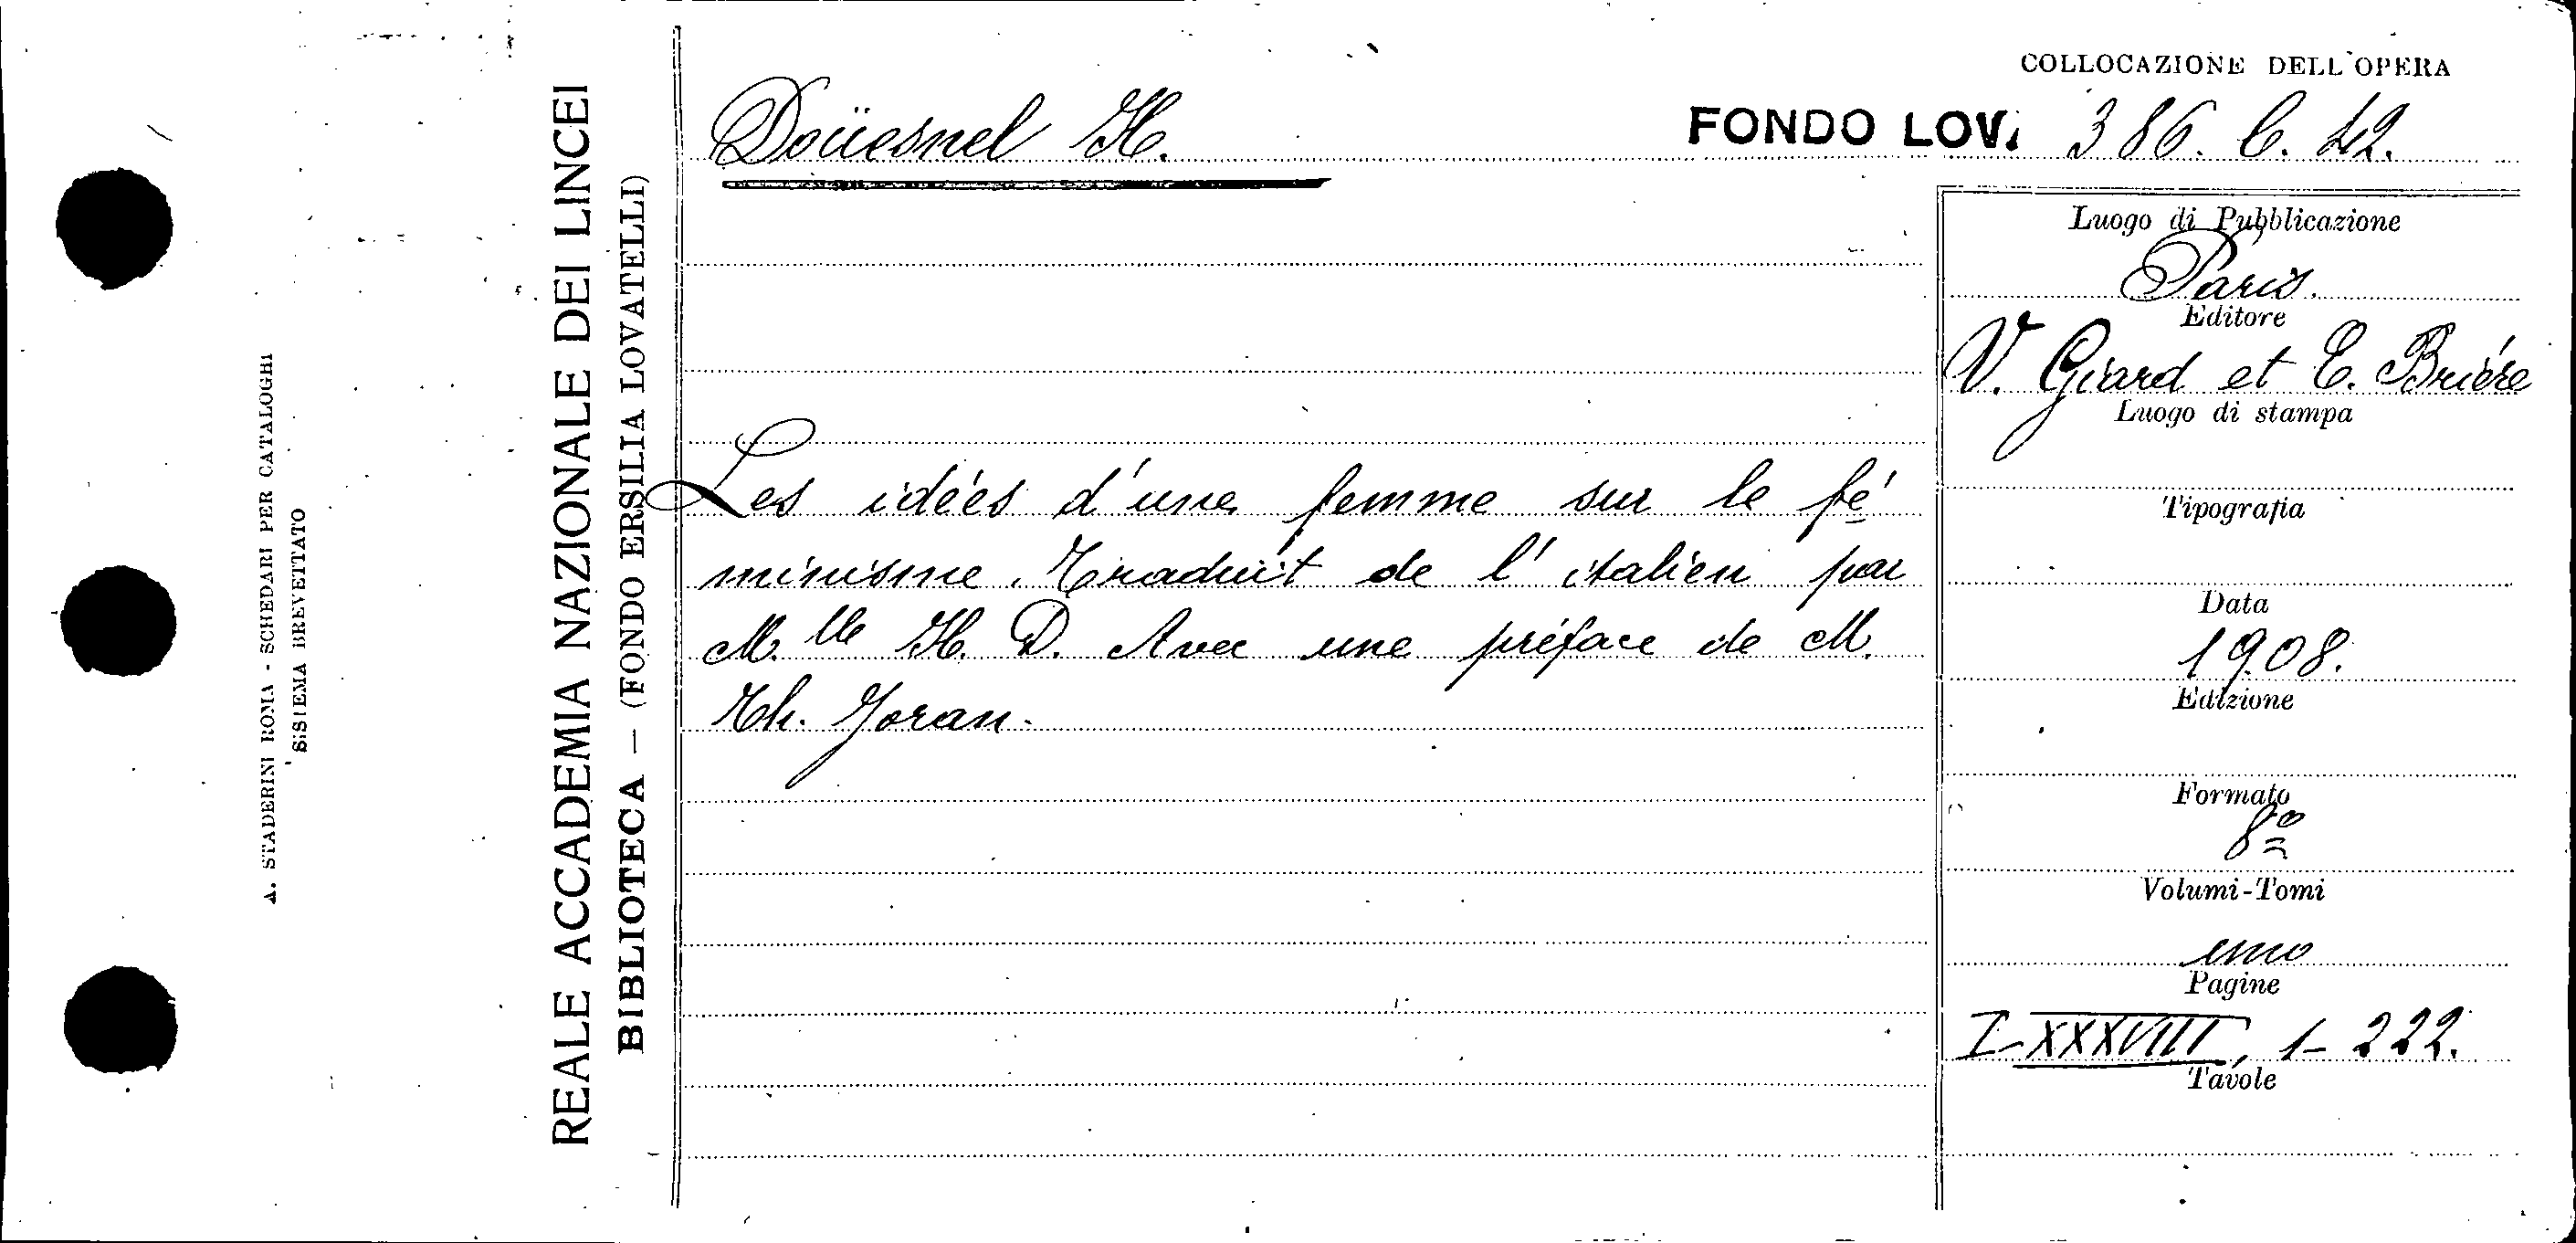 A. STADERINI ROMA - SCHEDARI PER CATALOGHI
SISTEMA BREVETTATO
REALE ACCADEMIA NAZIONALE DEI LINCEI
BIBLIOTECA — (FONDO ERSILIA LOVATELLI)
Doüesnel H.
Les idées d'une femme sur le fé
minisme. Traduit de l'italien par
M.lle H. D. Avec une préface de M.
Th. Joran.
COLLOCAZIONE DELL'OPERA
FONDO LOV. 386. C. 42.
Luogo di Pubblicazione
Paris.
Editore
V. Giard et E. Brière
Luogo di stampa
Tipografia
Data
1908.
Edizione
Formato
8º
Volumi-Tomi
uno
Pagine
I-XXXVIII, 1-222.
Tavole